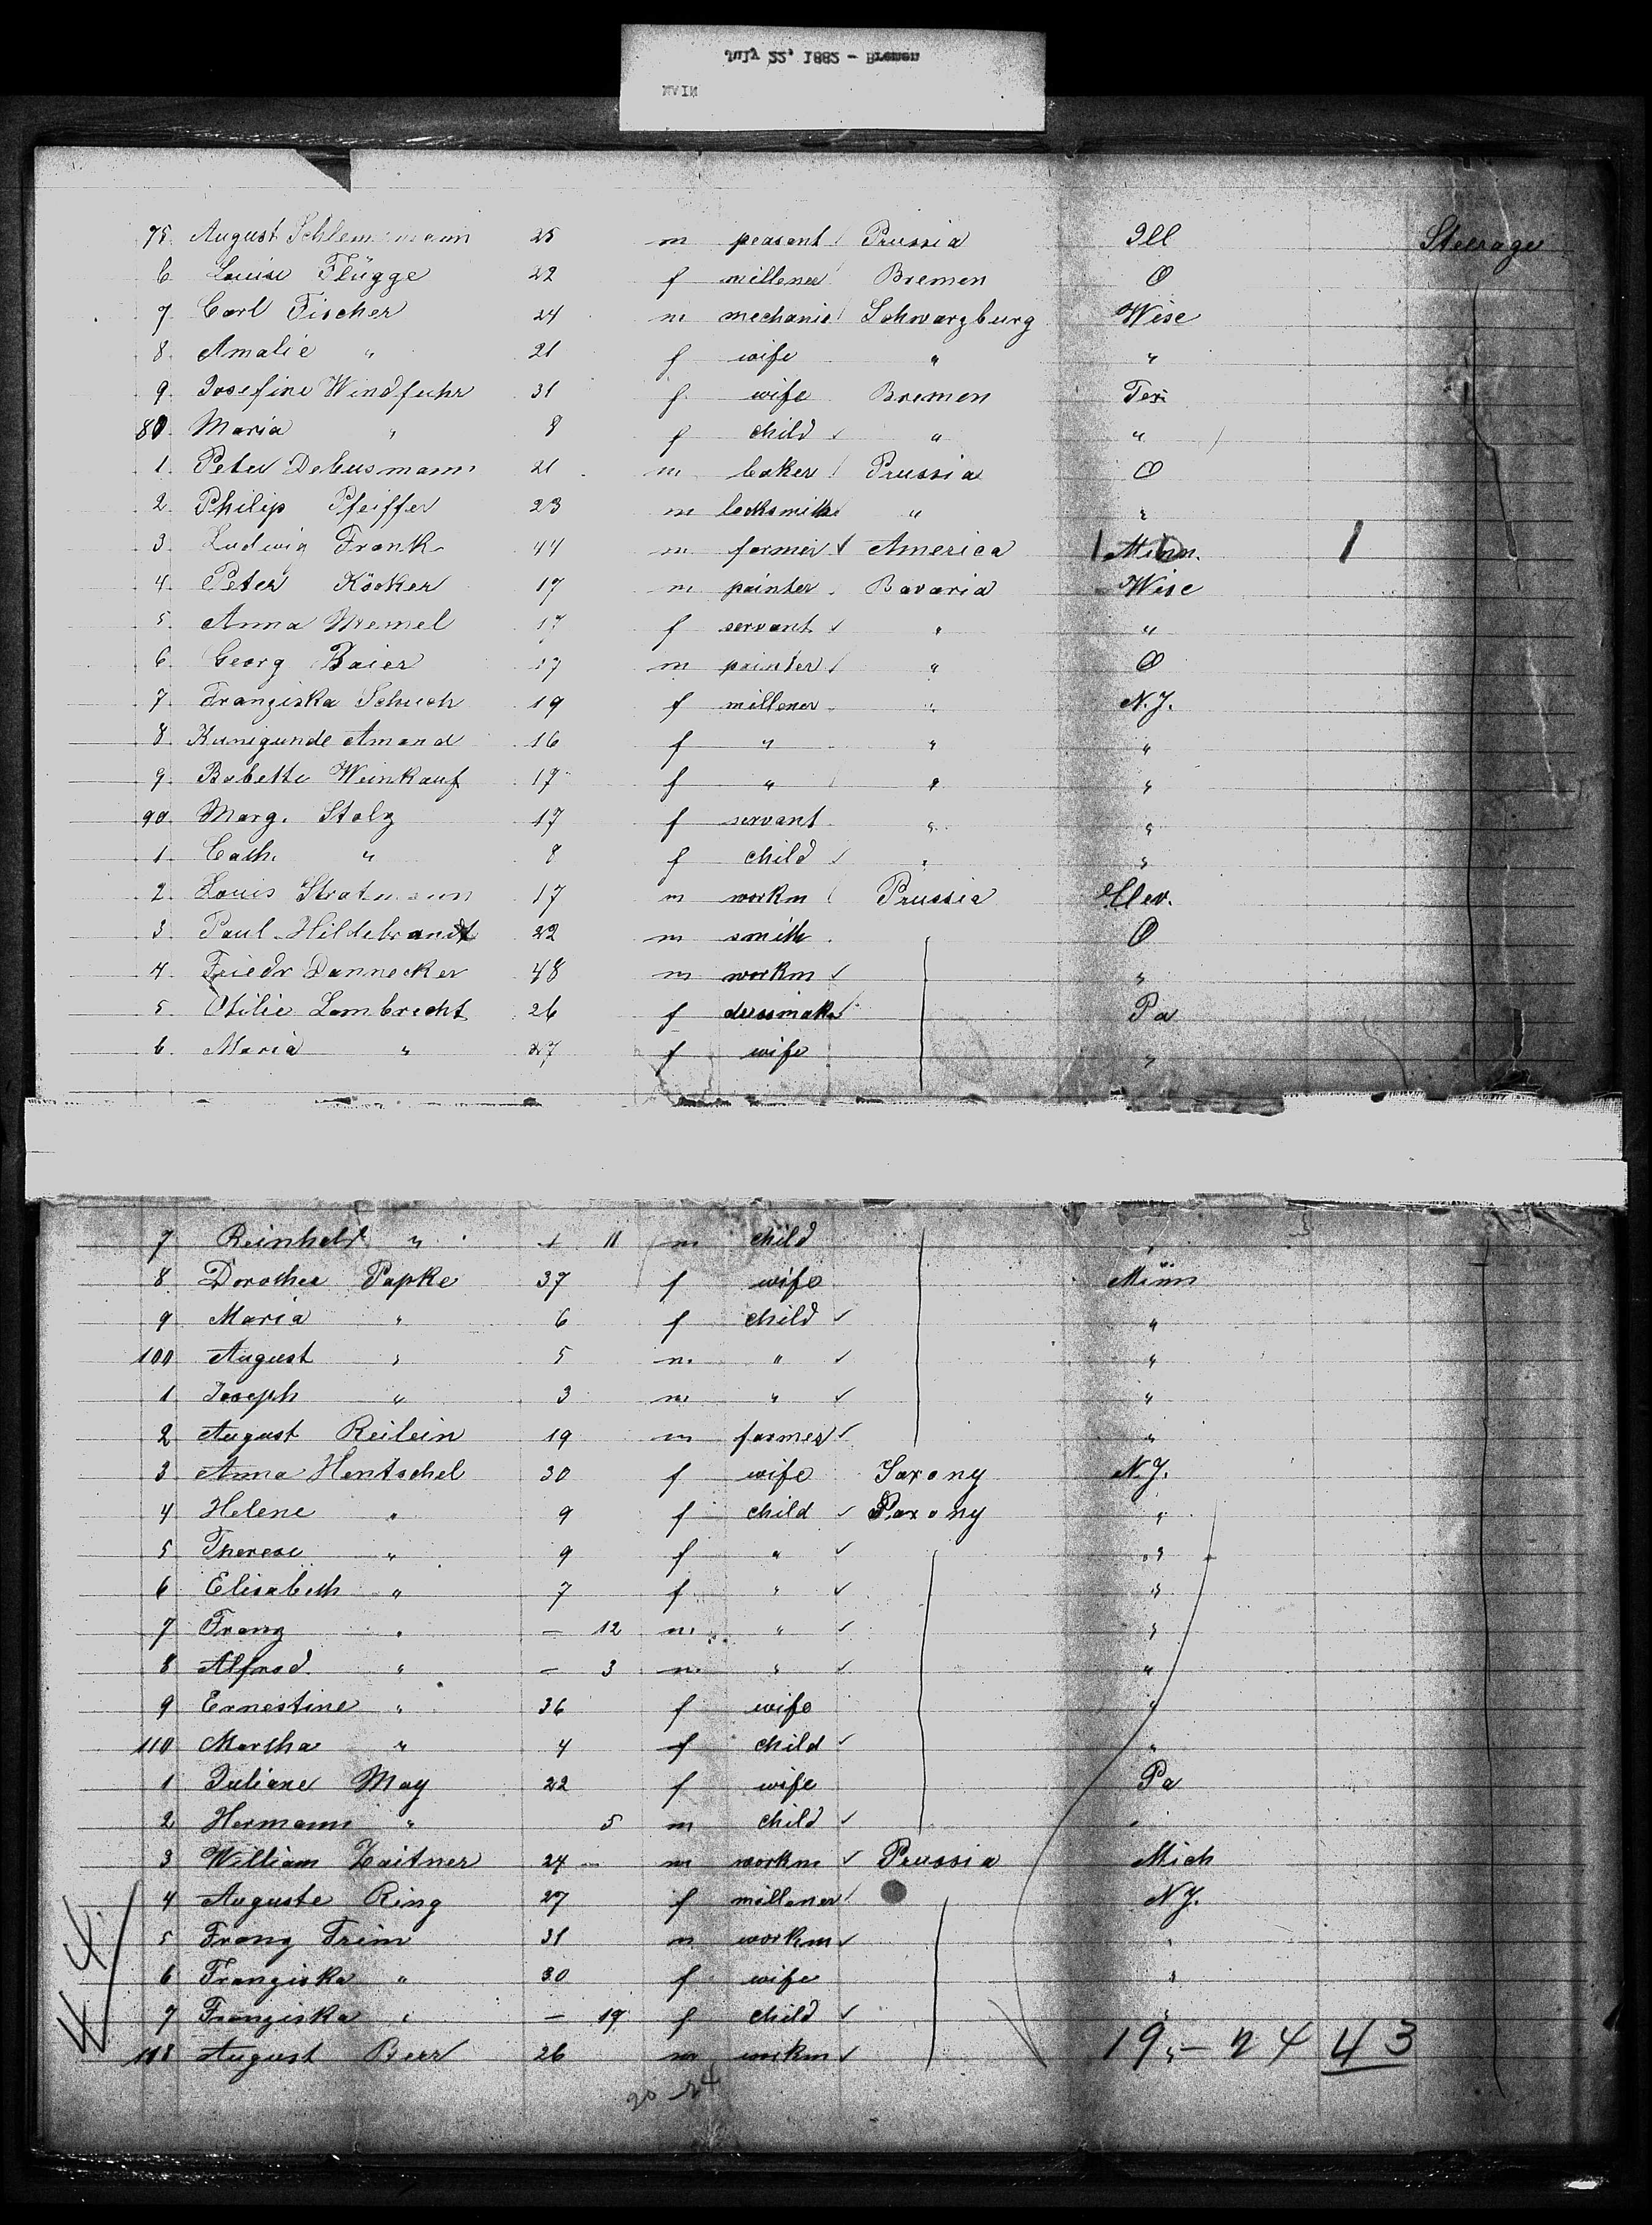 July 22, 1882 - Bremen
MAIN
75. August Schlemmann 25 m peasant Prussia Ill Steerage
6 Louise Flügge 22 f millener Bremen O
7 Carl Fischer 24 m mechanic Schwarzburg Wisc
8. Amalie " 21 f wife " "
9. Josefine Windfuhr 31 f. wife Bremen Tex
80. Maria " 8 f child ✓ " "
1. Peter Debusmann 21 m baker Prussia O
2. Philip Pfeiffer 23 m locksmith " "
3. Ludwig Frank 44 m farmer ✓ America 1 Minn. 1
4. Peter Köcker 17 m painter Bavaria Wisc
5. Anna Memel 17 f servant ✓ " "
6. Georg Baier 17 m painter " O
7. Franziska Schuch 19 f millener " N.J.
8. Kunigunde Amend 16 f " " "
9. Babette Weinkauf 17 f " " "
90. Marg. Stolz 17 f servant " "
1. Cath. " 8 f child ✓ " "
2. Louis Stratmann 17 m workm Prussia Clev.
3 Paul Hildebrandt 22 m smith O
4. Friedr Dannecker 48 m workm ✓ "
5 Otilie Lambrecht 26 f dressmaker Pa
6. Maria " 27 f wife "
7 Reinhold " 11 m child "
8 Dorothea Papke 37 f wife Minn
9 Maria " 6 f child ✓ "
100 August " 5 m " ✓ "
1 Joseph " 3 m " ✓ "
2 August Reilein 19 m farmer ✓ "
3 Anna Hentschel 30 f wife Saxony N.J.
4 Helene " 9 f child ✓ Saxony "
5 Therese " 9 f " ✓ "
6 Elisabeth " 7 f " ✓ "
7 Franz " — 12 m " ✓ "
8 Alfred " — 3 m " ✓ "
9 Ernestine " 36 f wife "
110 Martha " 4 f child ✓ "
1 Juliane May 22 f wife Pa
2 Hermann " 5 m child ✓ "
3 William Zaitner 24 — m workm ✓ Prussia Mich
4 Auguste Ring 27 f millener N.J.
5 Franz Trim 31 m workm ✓ "
6 Franziska " 30 f wife "
7 Franziska " — 19 f child ✓ "
118 August Beer 26 m workm ✓ "
19 - 24 43
20 24
44